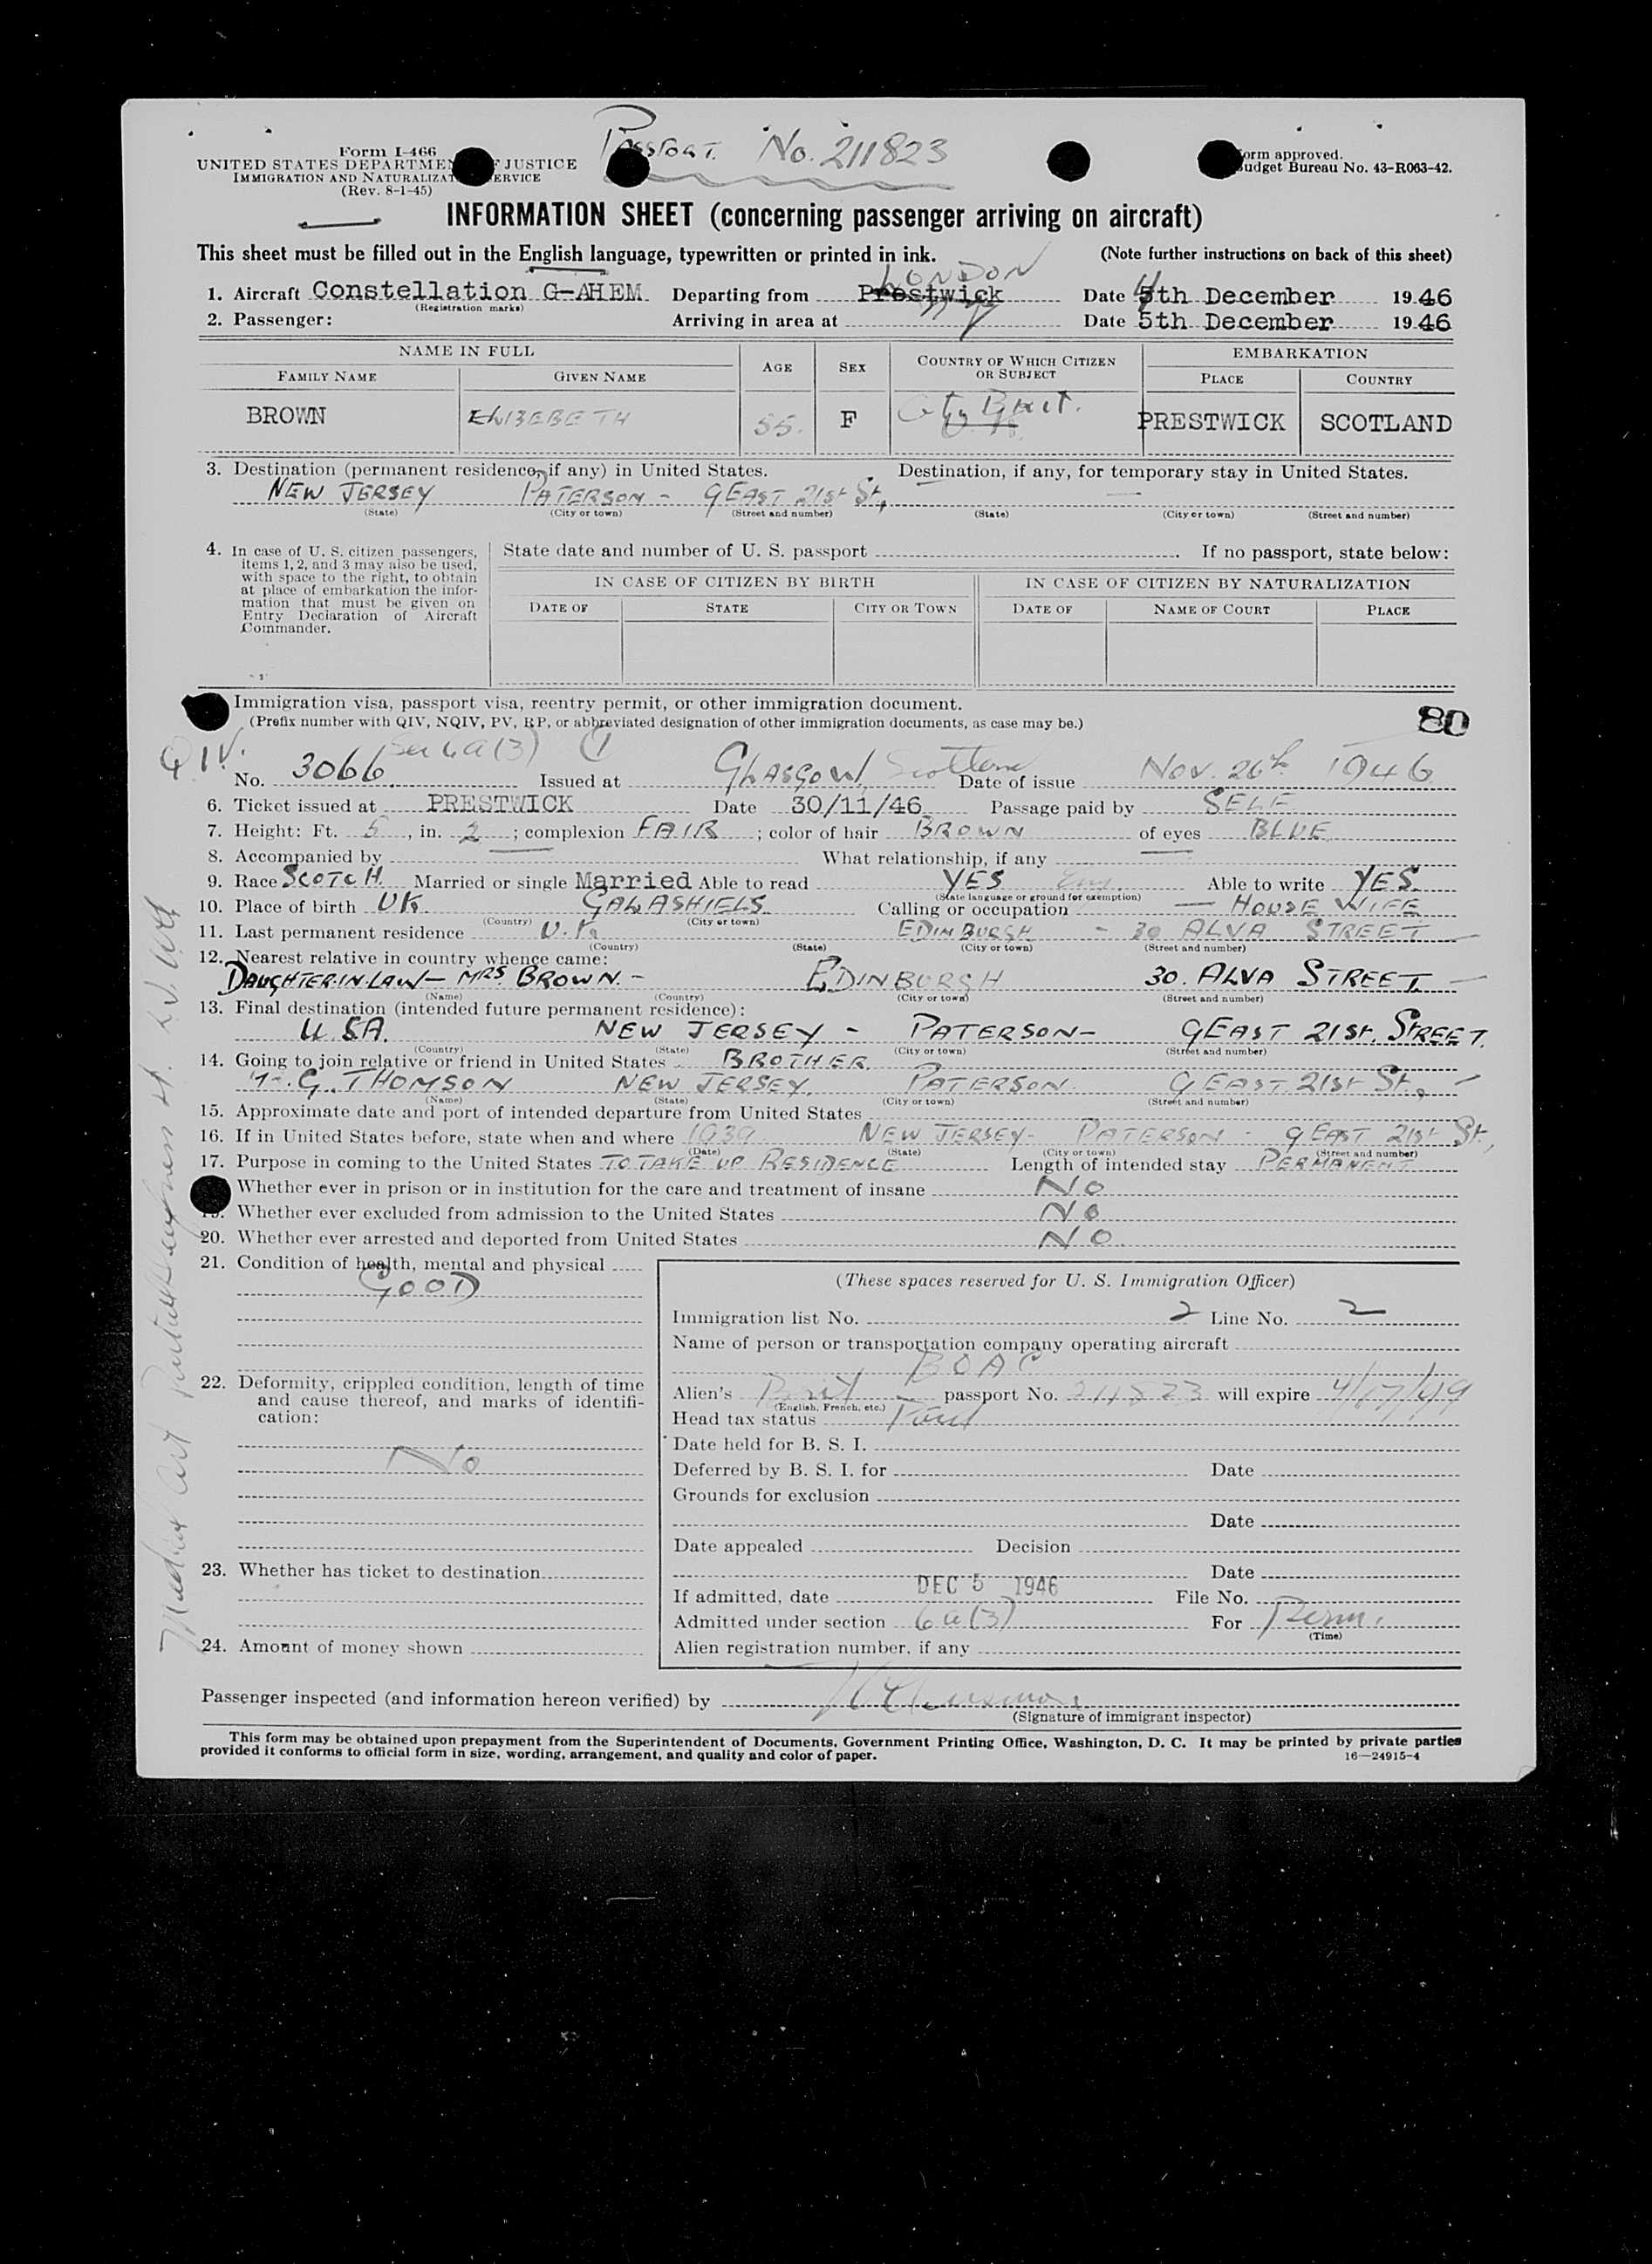 PASSPORT. No. 211823
Form I-466
UNITED STATES DEPARTMEN F JUSTICE
IMMIGRATION AND NATURALIZAT ERVICE
(Rev. 8-1-45)
orm approved.
udget Bureau No. 43-R063-42.
INFORMATION SHEET (concerning passenger arriving on aircraft)
This sheet must be filled out in the English language, typewritten or printed in ink. (Note further instructions on back of this sheet)
LONDON
1. Aircraft Constellation G-AHEM Departing from Prestwick Date 4 5th December 1946
(Registration marks)
2. Passenger: Arriving in area at NY Date 5th December 1946
NAME IN FULL AGE SEX COUNTRY OF WHICH CITIZEN OR SUBJECT EMBARKATION
FAMILY NAME GIVEN NAME PLACE COUNTRY
BROWN ELIZEBETH 55. F Brit. PRESTWICK SCOTLAND
3. Destination (permanent residence, if any) in United States. Destination, if any, for temporary stay in United States.
NEW JERSEY PATERSON - 9 EAST 21st St, —
(State) (City or town) (Street and number) (State) (City or town) (Street and number)
4. In case of U. S. citizen passengers, items 1, 2, and 3 may also be used, with space to the right, to obtain at place of embarkation the information that must be given on Entry Declaration of Aircraft Commander.
State date and number of U. S. passport . If no passport, state below:
IN CASE OF CITIZEN BY BIRTH IN CASE OF CITIZEN BY NATURALIZATION
DATE OF STATE CITY OR TOWN DATE OF NAME OF COURT PLACE
Immigration visa, passport visa, reentry permit, or other immigration document.
(Prefix number with QIV, NQIV, PV, RP, or abbreviated designation of other immigration documents, as case may be.) 80
QIV. Sec 6a(3)
No. 3066 Issued at GLASGOW, Scotland Date of issue Nov. 26th 1946
6. Ticket issued at PRESTWICK Date 30/11/46 Passage paid by SELF
7. Height: Ft. 5, in. 2; complexion FAIR; color of hair BROWN of eyes BLUE
8. Accompanied by — What relationship, if any —
9. Race SCOTCH. Married or single Married Able to read YES Eng. Able to write YES.
(State language or ground for exemption)
10. Place of birth UK. GALASHIELS Calling or occupation — HOUSE WIFE
(Country) (City or town)
11. Last permanent residence U.K. EDINBURGH - 30 ALVA STREET
(Country) (State) (City or town) (Street and number)
12. Nearest relative in country whence came:
DAUGHTER-IN-LAW - MRS BROWN. - EDINBURGH 30. ALVA STREET. -
(Name) (Country) (City or town) (Street and number)
13. Final destination (intended future permanent residence):
U.S.A. NEW JERSEY - PATERSON - 9 EAST 21st. STREET.
(Country) (State) (City or town) (Street and number)
14. Going to join relative or friend in United States BROTHER.
G. THOMSON NEW JERSEY. PATERSON 9 EAST 21st St.,
(Name) (State) (City or town) (Street and number)
15. Approximate date and port of intended departure from United States
16. If in United States before, state when and where 1939 NEW JERSEY - PATERSON - 9 EAST 21st St,
(Date) (State) (City or town) (Street and number)
17. Purpose in coming to the United States TO TAKE UP RESIDENCE Length of intended stay PERMANENT
Whether ever in prison or in institution for the care and treatment of insane NO
19. Whether ever excluded from admission to the United States NO
20. Whether ever arrested and deported from United States NO.
21. Condition of health, mental and physical
GOOD
22. Deformity, crippled condition, length of time and cause thereof, and marks of identification:
No
23. Whether has ticket to destination
24. Amount of money shown
(These spaces reserved for U. S. Immigration Officer)
Immigration list No. 2 Line No. 2
Name of person or transportation company operating aircraft
BOAC
Alien's Brit passport No. 211823 will expire 4/17/49
(English, French, etc.)
Head tax status Paid
Date held for B. S. I.
Deferred by B. S. I. for Date
Grounds for exclusion
Date
Date appealed Decision
Date
If admitted, date DEC 5 1946 File No.
Admitted under section 6a(3) For Perm.
(Time)
Alien registration number, if any
Passenger inspected (and information hereon verified) by
(Signature of immigrant inspector)
This form may be obtained upon prepayment from the Superintendent of Documents, Government Printing Office, Washington, D. C. It may be printed by private parties
provided it conforms to official form in size, wording, arrangement, and quality and color of paper. 16—24915-4
Medical Cert